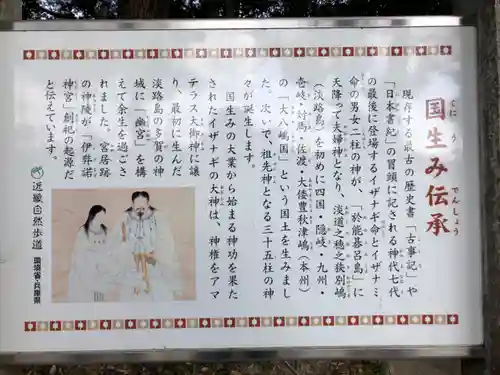 国生み伝承
くにう
でんしょう
現存する最古の歴史書「古事記」や
「日本書紀」の冒頭に記される神代七代
の最後に登場するイザナギ命とイザナミ
命の男女二柱の神が、「於能碁呂島」に
天降って夫婦神となり、淡道之穂之狭別嶋
（淡路島）を初めに四国・隠岐・九州・
壱岐・対馬・佐渡・大倭豊秋津嶋（本州）
の「大八嶋国」という国土を生みまし
た。次いで、祖先神となる三十五柱の神
々が誕生します。
国生みの大業から始まる神功を果た
されたイザナギの大神は、神権をアマ
テラス大御神に譲
り、最初に生んだ
淡路島の多賀の神
域に「幽宮」を構
えて余生を過ごさ
れました。宮居跡
の神陵が「伊弉諾
神宮」創祀の起源だ
と伝えています。
近畿自然歩道
環境省・兵庫県